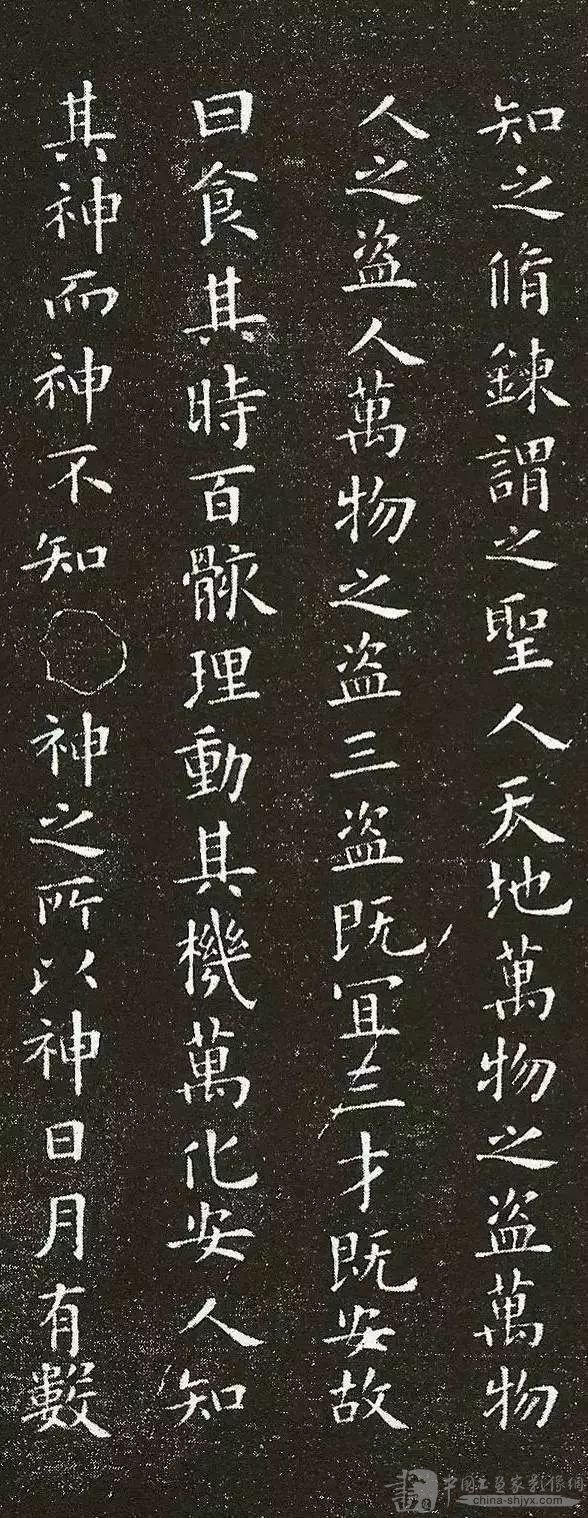 知之脩鍊謂之聖人天地萬物之盗萬物
人之盗人萬物之盗三盗既冝三才既安故
曰食其時百骸理動其機萬化安人知
其神而神不知○神之所以神日月有數
china-shjyx.com